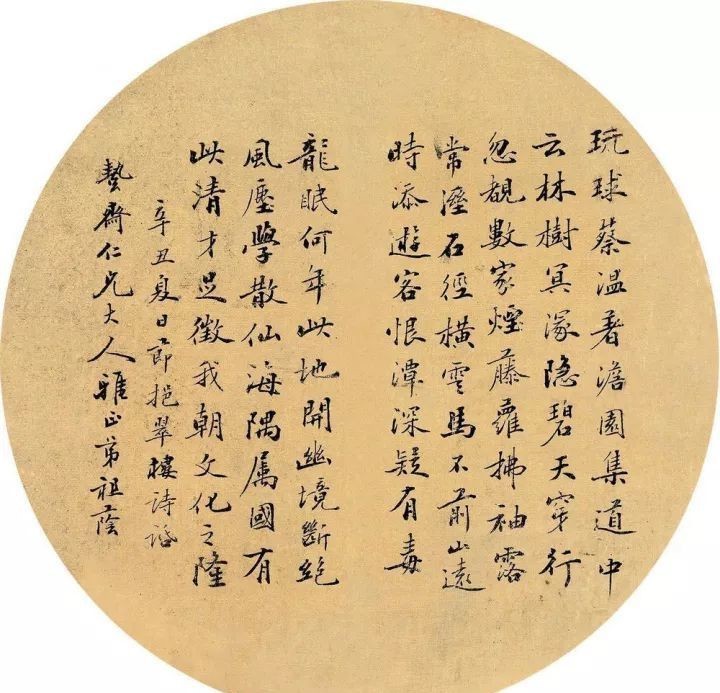 琉球蔡溫著澹園集道中
云林樹冥濛隐碧天穿行
忽覩數家煙藤蘿拂袖露
常溼石徑橫雲馬不前山遠
時添遊客恨潭深疑有毒
龍眠何年此地開幽境斷絕
風塵學散仙海隅属國有
此清才足徵我朝文化之隆
辛丑夏日節挹翠樓詩話
藝齋仁兄大人雅正弟祖蔭